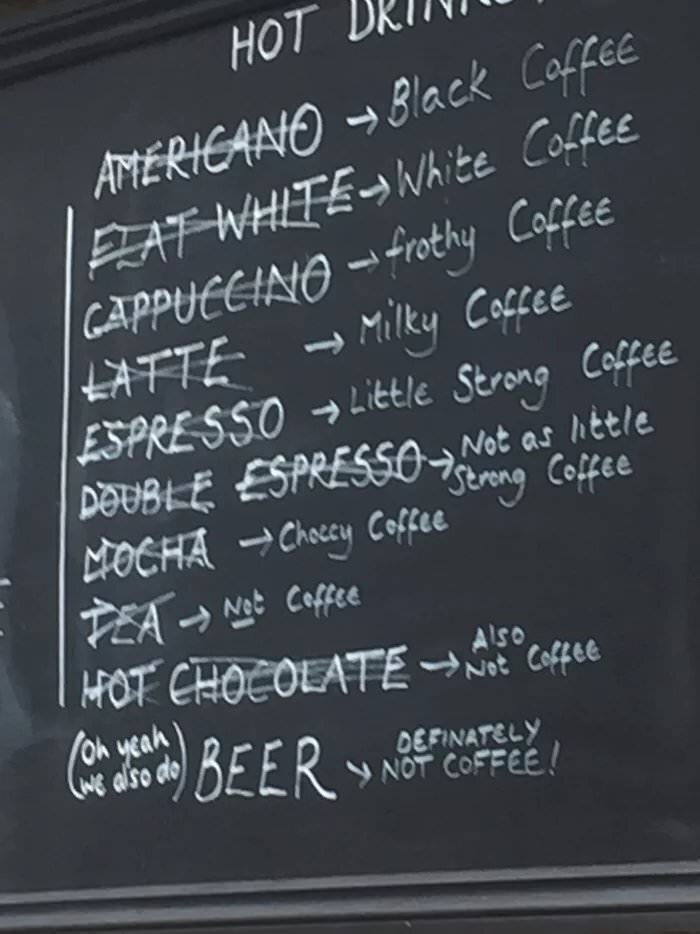 HOT DRINKS
AMERICANO → Black Coffee
FLAT WHITE → White Coffee
CAPPUCCINO → frothy Coffee
LATTE → Milky Coffee
ESPRESSO → Little Strong Coffee
DOUBLE ESPRESSO → Not as little
Strong Coffee
MOCHA → Choccy Coffee
TEA → Not Coffee
HOT CHOCOLATE → Also
Not Coffee
(Oh yeah
we also do) BEER → DEFINATELY
NOT COFFEE!